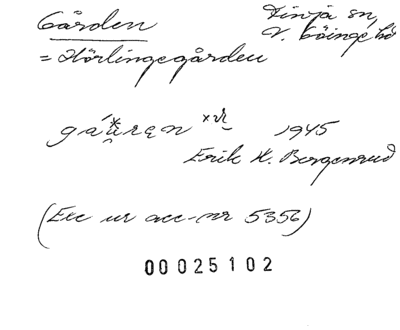 Gården Finja sn,
= Hörlingegården V. Göinge hd
1945
Erik K. Bergenrud
(Exc ur acc-nr 5356)
00025102